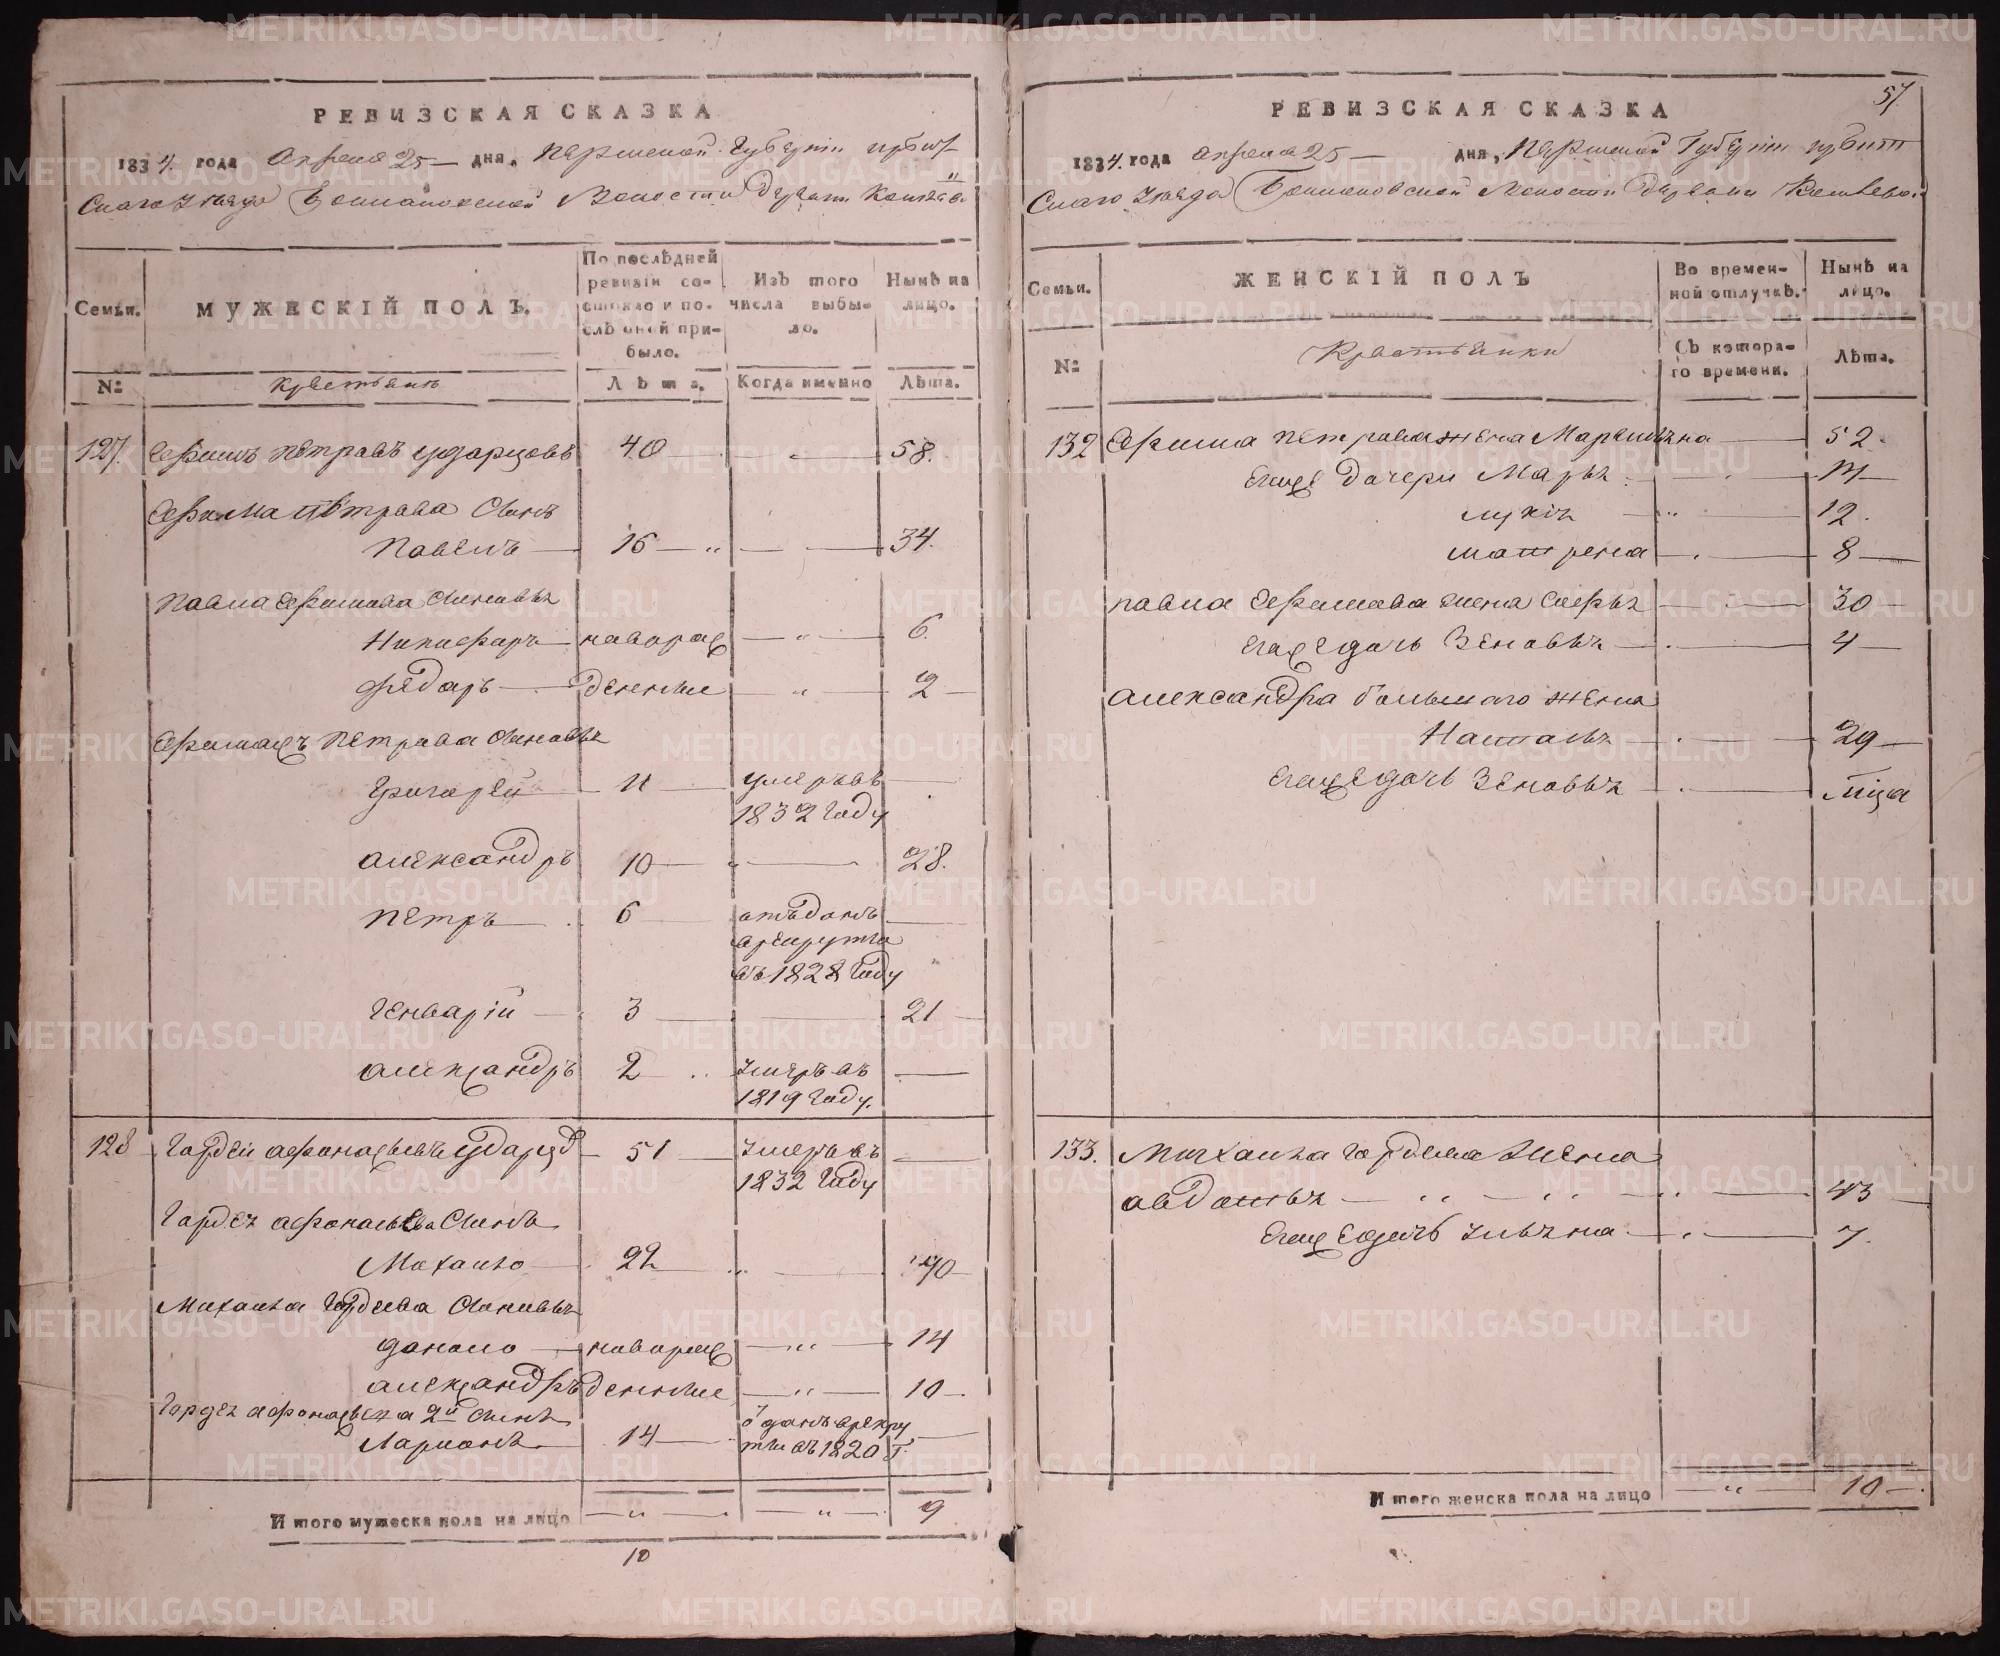 РЕВИЗСКАЯ СКАЗКА
1834. года Апреля 25 — дня, Пермской Губернiи Ирбит
скаго Уезда Волости Деревни
Семьи.
МУЖЕСКIЙ ПОЛЪ.
По послѣдней ревизiи состояло и послѣ оной прибыло.
Изъ того числа выбыло.
Нынѣ на лицо.
№
Крестьяне
Лѣта.
Когда имянно
Лѣта.
127. Ефимъ Петровъ Ударцовъ 40 58.
Ефима Петрова Сынъ
Павелъ 16 34.
Павла Ефимова Сыновья
Никифоръ новорож 6.
Федоръ денные 2
Петрова Сыновья
Григорей 11 умеръ въ
1832 Году
Александръ 10 28.
Петръ 6 отъданъ
в рекруты
въ 1828 Году
Генварiй 3 21
Александръ 2 Умеръ въ
1819 Году.
128 Гордей Афонасьевъ Ударцо 51 Умеръ въ
1832 Году
Гордея Афонасьева Сынъ
Михаило 22 40
Михаила Гордеева Сыновья
Данило новорож 14
Александръ денные 10
Гордея Афонасьева 2й Сынъ
Ларионъ 14 Оданъ в рекру
ты въ 1820 Г.
И того мужеска пола на лицо 9
10
57.
РЕВИЗСКАЯ СКАЗКА
1834. года Апреля 25 — дня, Пермской Губернiи Ирбит
скаго Уезда Волости Деревни
Семьи.
ЖЕНСКIЙ ПОЛЪ
Во временной отлучкѣ.
Нынѣ на лицо.
№
Крестьянки
Съ котораго времени.
Лѣта.
132 Ефима Петрова жена Маремьяна 52.
Ево дочери Марья
Лукия 12.
Матрена 8
Павла Ефимова жена Софья 30
Ево дочь Зеновья 4
Александра большаго жена
Наталья 29
Ево дочь Зеновья
133. Михаила Гордеева Жена
Авдотья 43
Ево дочь Ульяна 7.
И того женска пола на лицо 10
METRIKI.GASO-URAL.RU